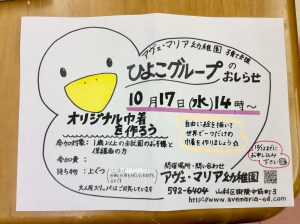 アヴェ・マリア幼稚園 子育て支援
ひよこグループの
おしらせ
10月17日(水)14時〜
オリジナル巾着
を作ろう
自由に絵を描いて
世界で一つだけの
巾着を作りましょう
参加対象: 1歳以上の未就園のお子様と
保護者の方
参加費:
持ち物: 上ぐつ
大人用スリッパはご用意しています
までに
お申し込み
下さい
開催場所・問い合わせ
アヴェ・マリア幼稚園
592-6404 山科区御陵中筋町3
www.avemaria-vd.com